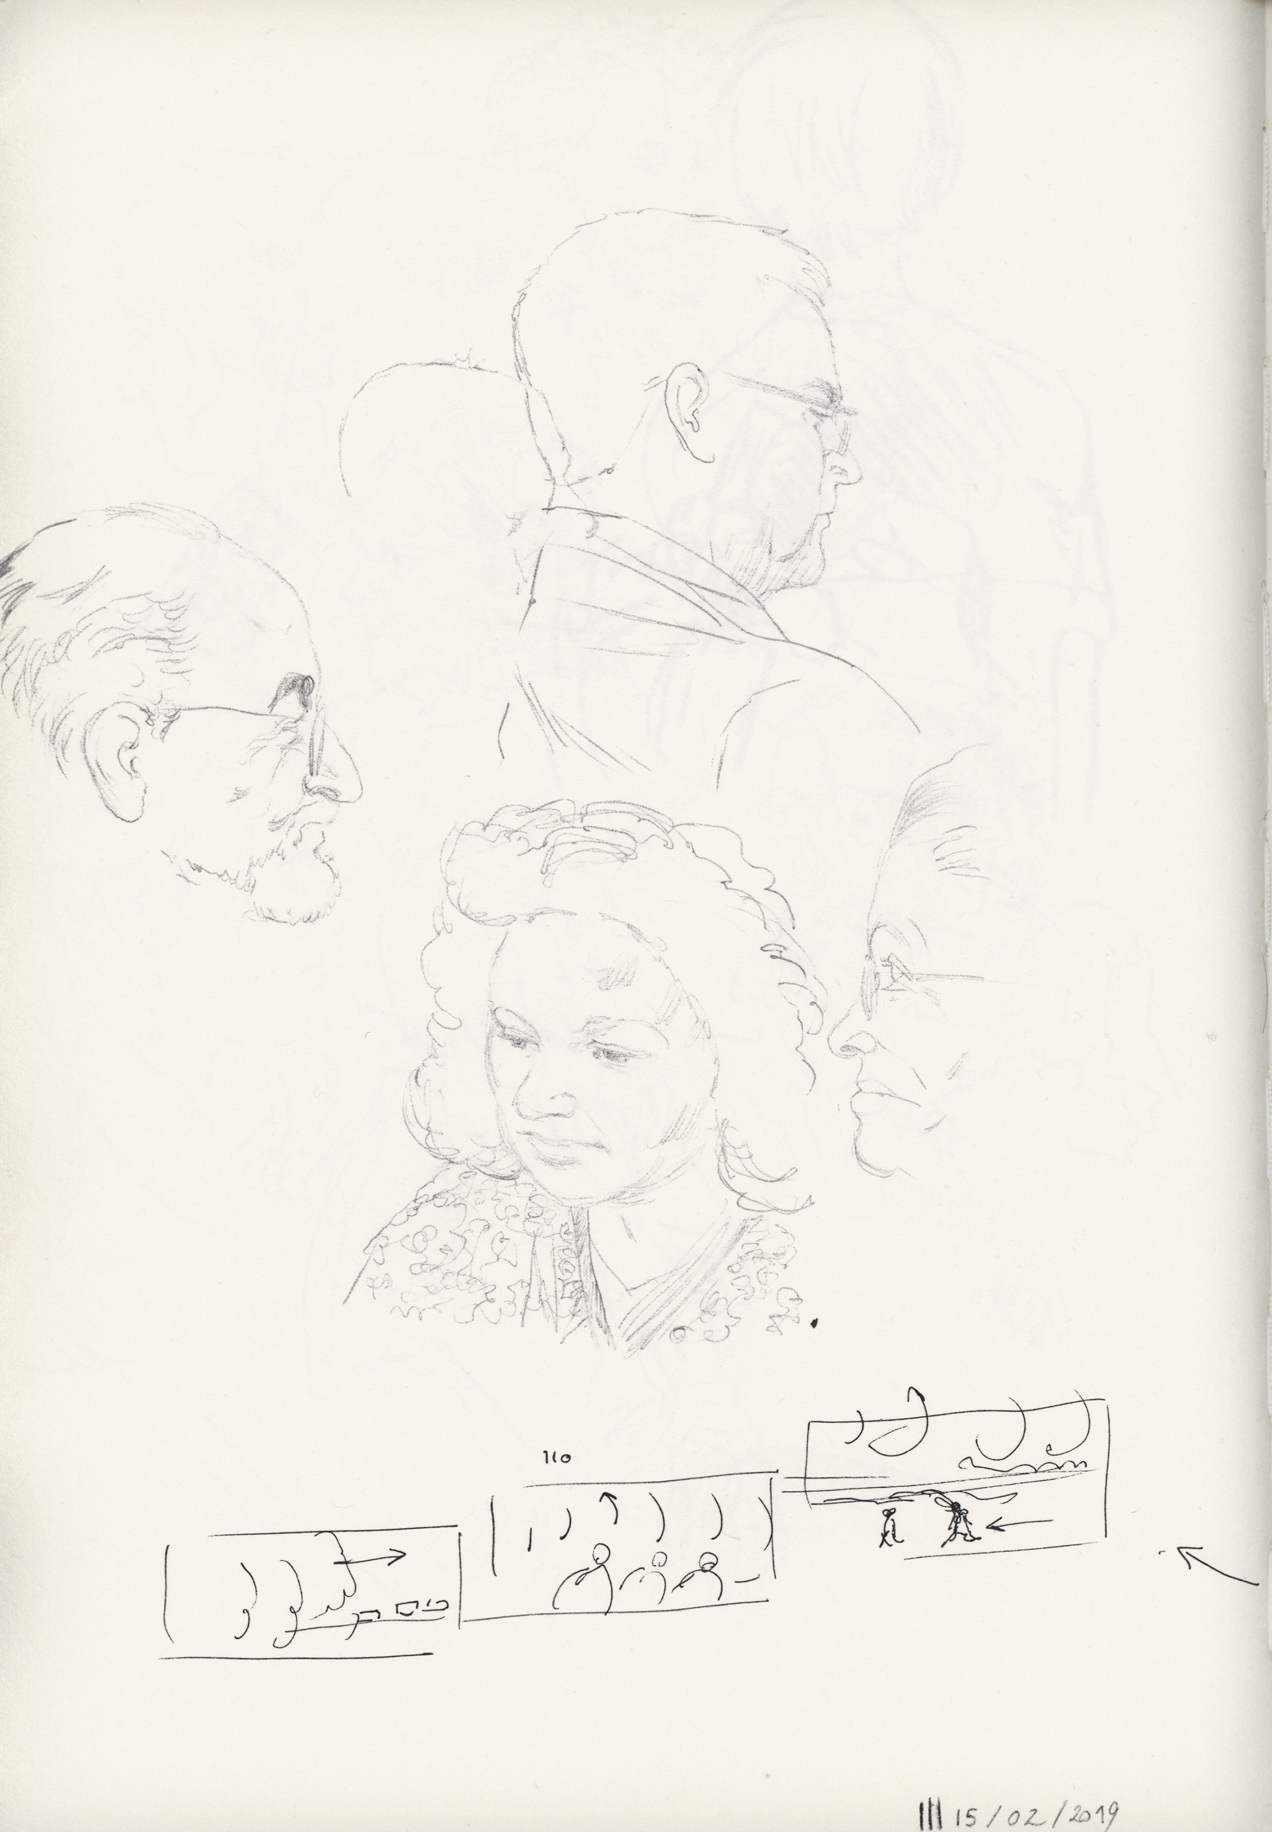 110
III 15/02/2019